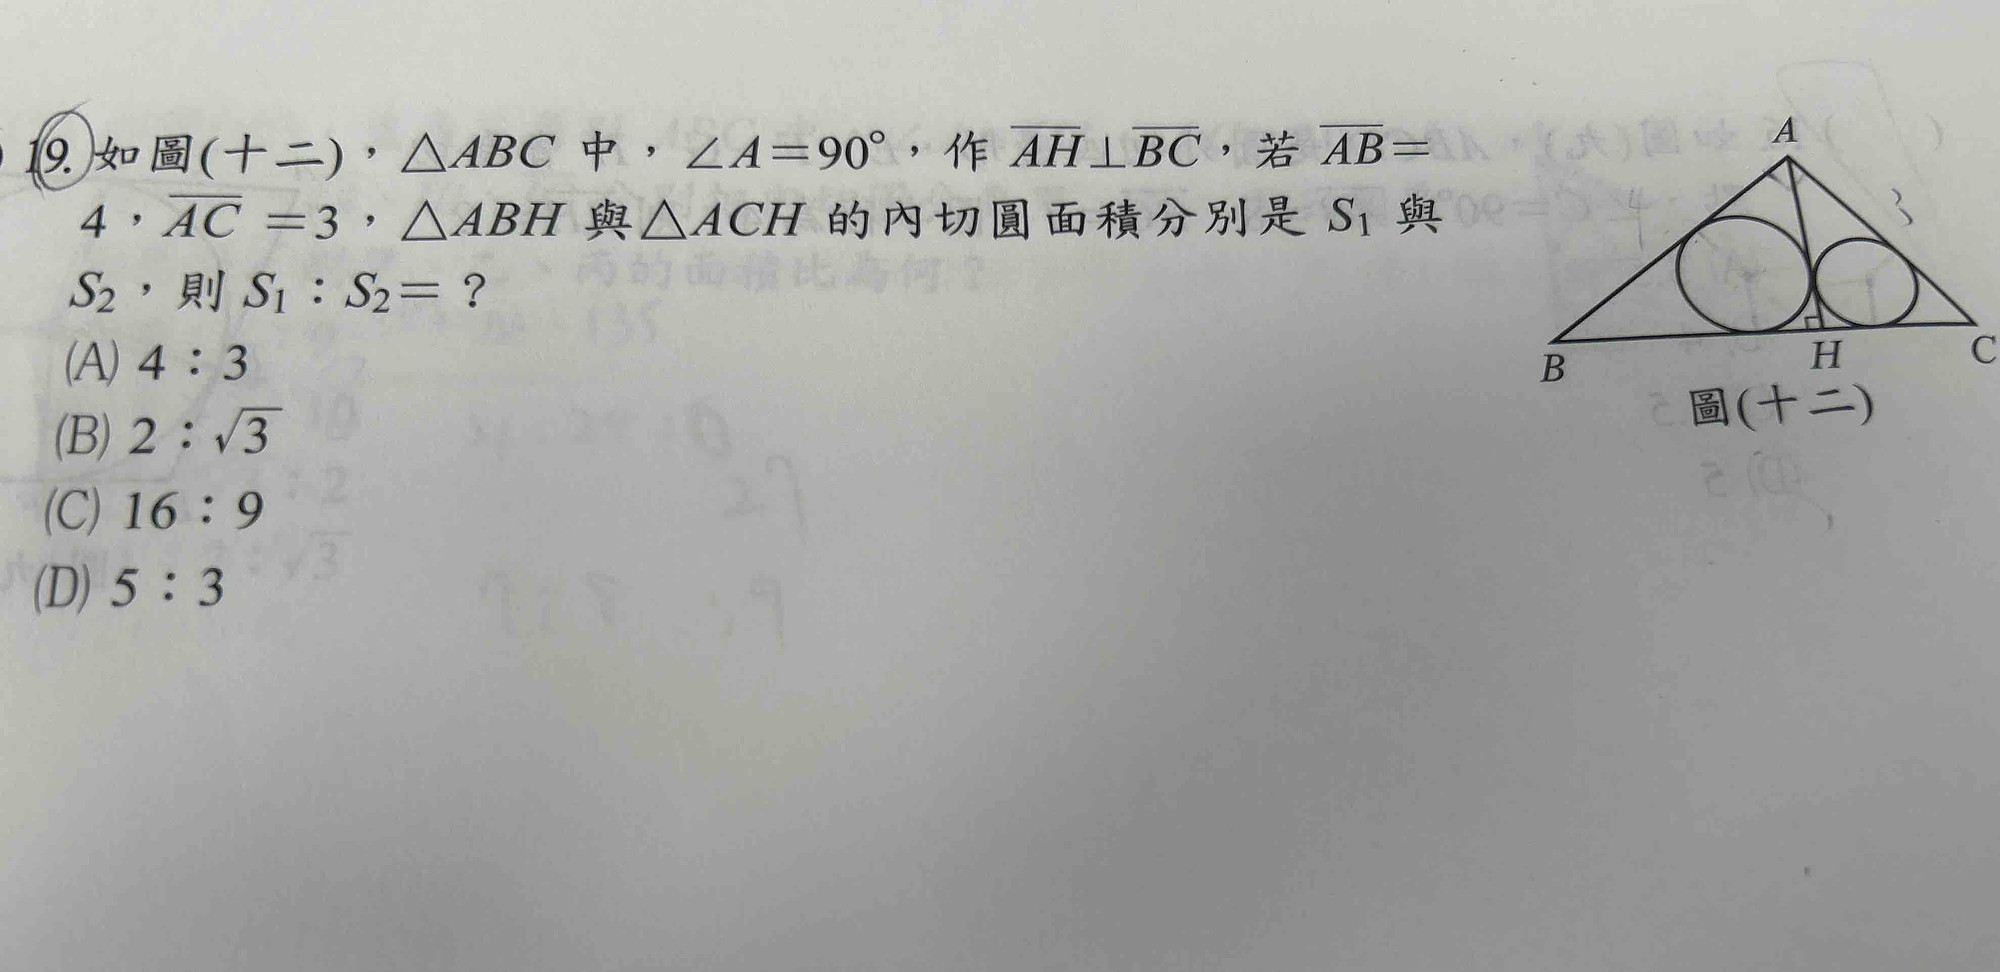 19. 如圖(十二)，△ABC 中，∠A＝90°，作 AH⊥BC，若 AB＝
4，AC＝3，△ABH 與△ACH 的內切圓面積分別是 S1 與
S2，則 S1：S2＝？
(A) 4：3
(B) 2：√3
(C) 16：9
(D) 5：3
A
4
3
B
H
C
圖(十二)